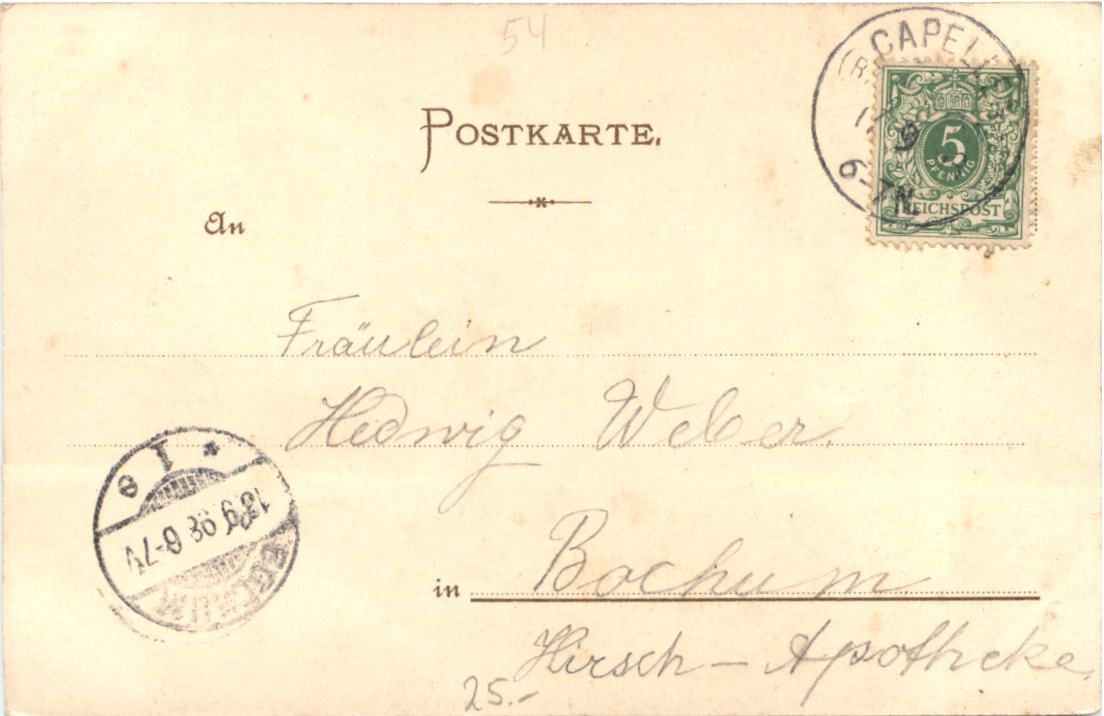 54
POSTKARTE.
CAPELLEN
9
6-7N
5
PFENNIG
REICHSPOST
An
Fräulein
Hedwig Weber.
BOCHUM
18.9.98 6-7V
* 1 e
in Bochum.
Hirsch - Apotheke.
25.-